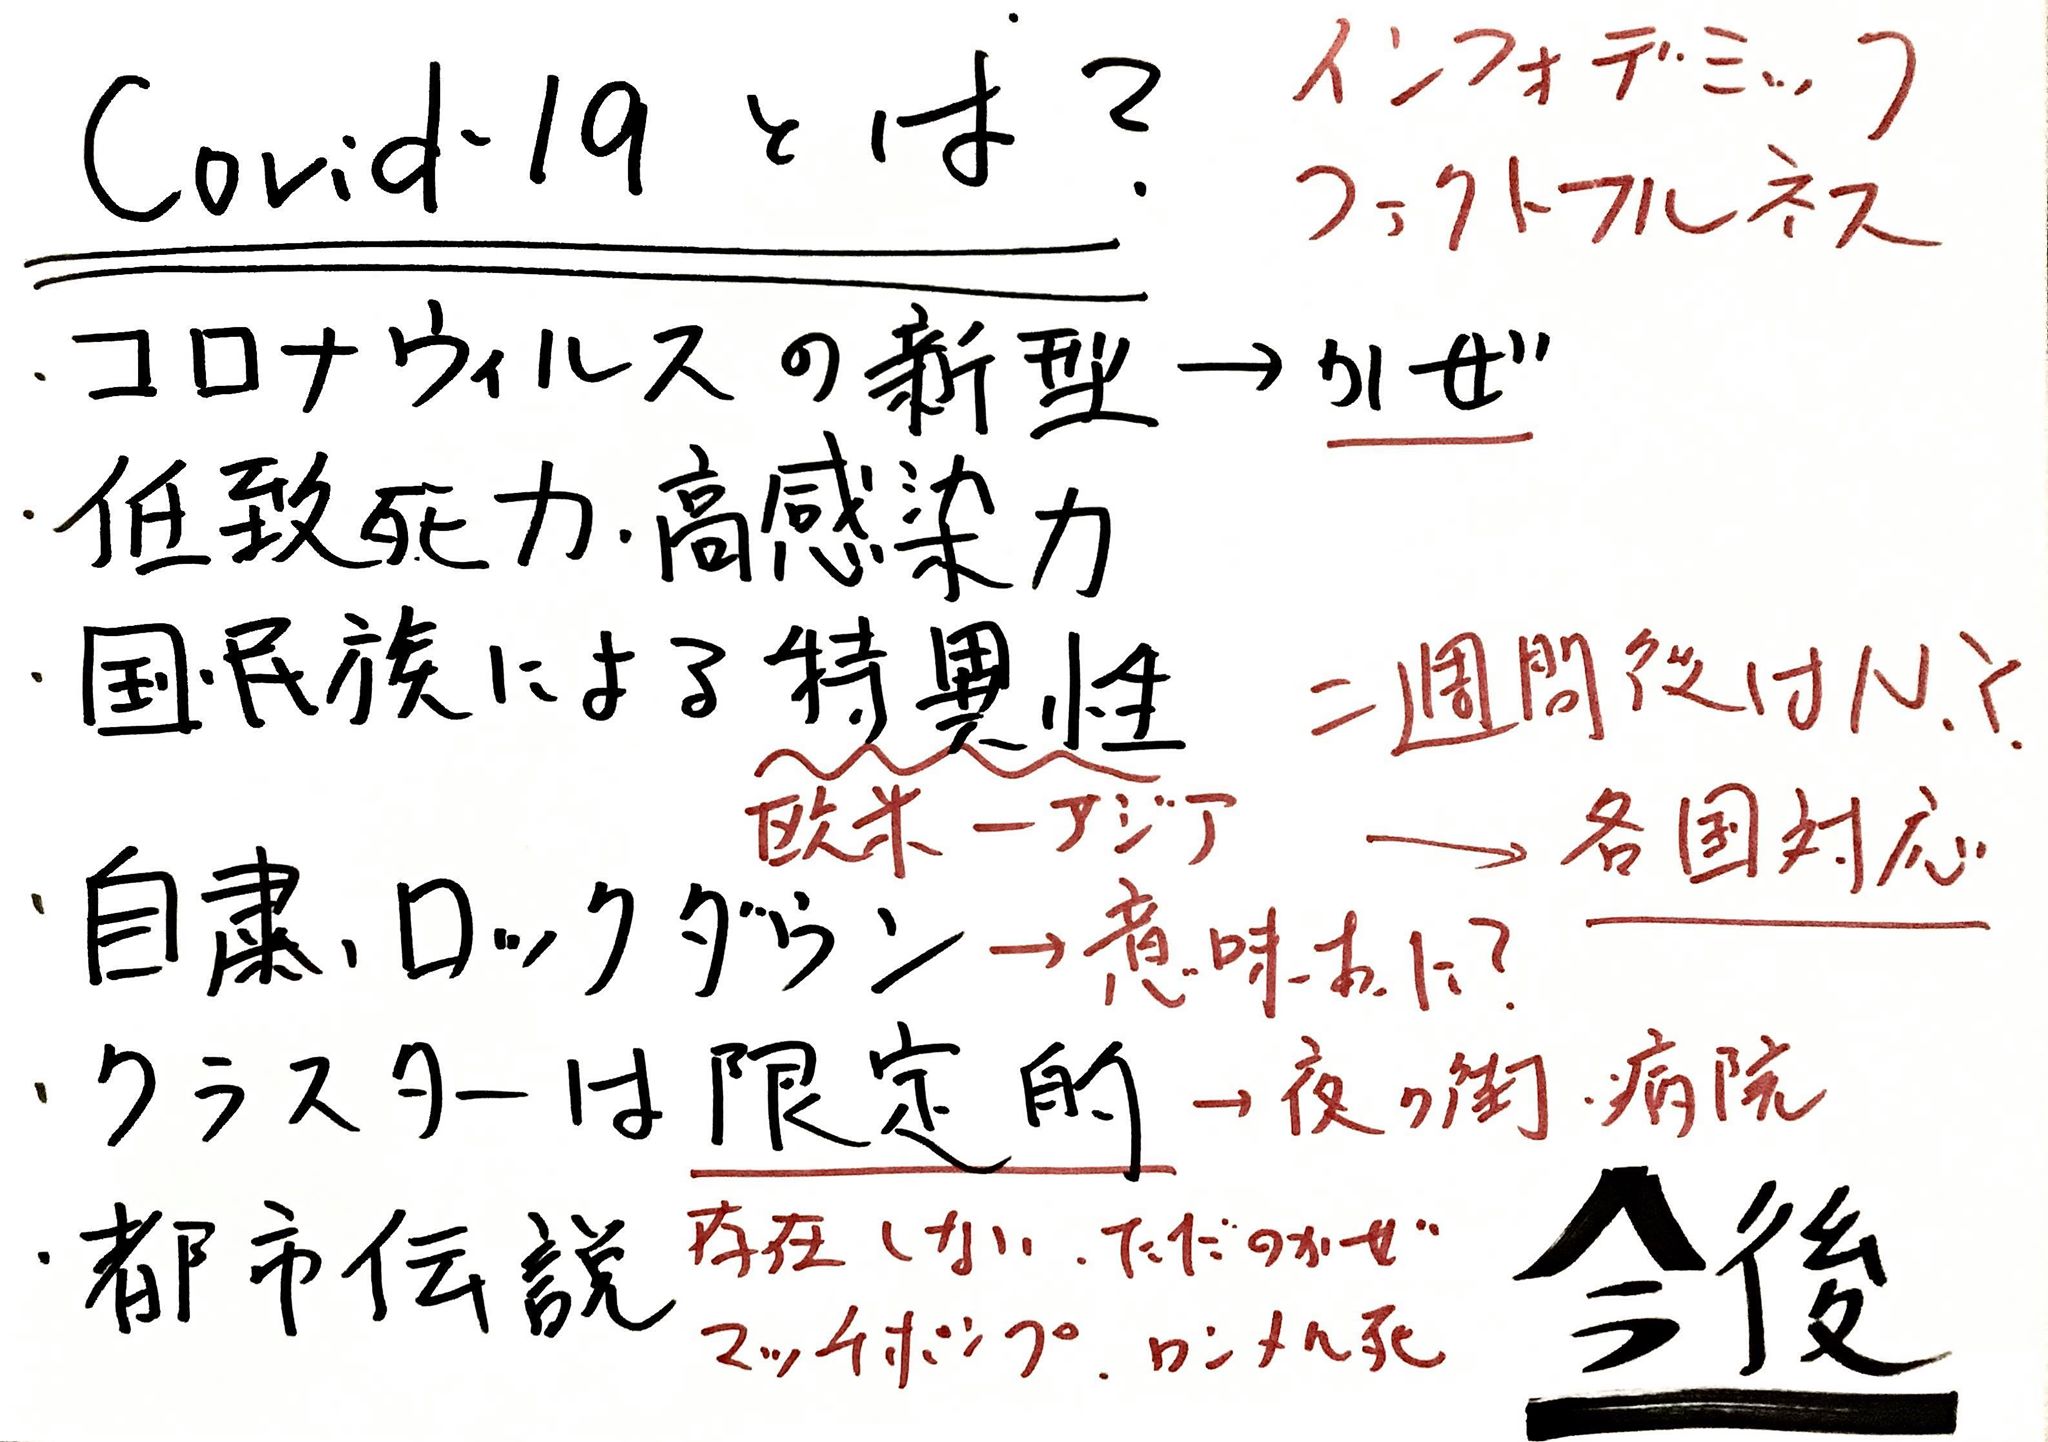 Covid-19とは?
インフォデミック
ファクトフルネス
・コロナウィルスの新型→かぜ
・低致死力・高感染力
・国・民族による特異性
欧米ーアジア
二週間後はN.Y.
→各国対応
・自粛、ロックダウン→意味あった?
・クラスターは限定的→夜の街・病院
・都市伝説
存在しない.ただのかぜ
マッチポンプ.ロンメル死
今後